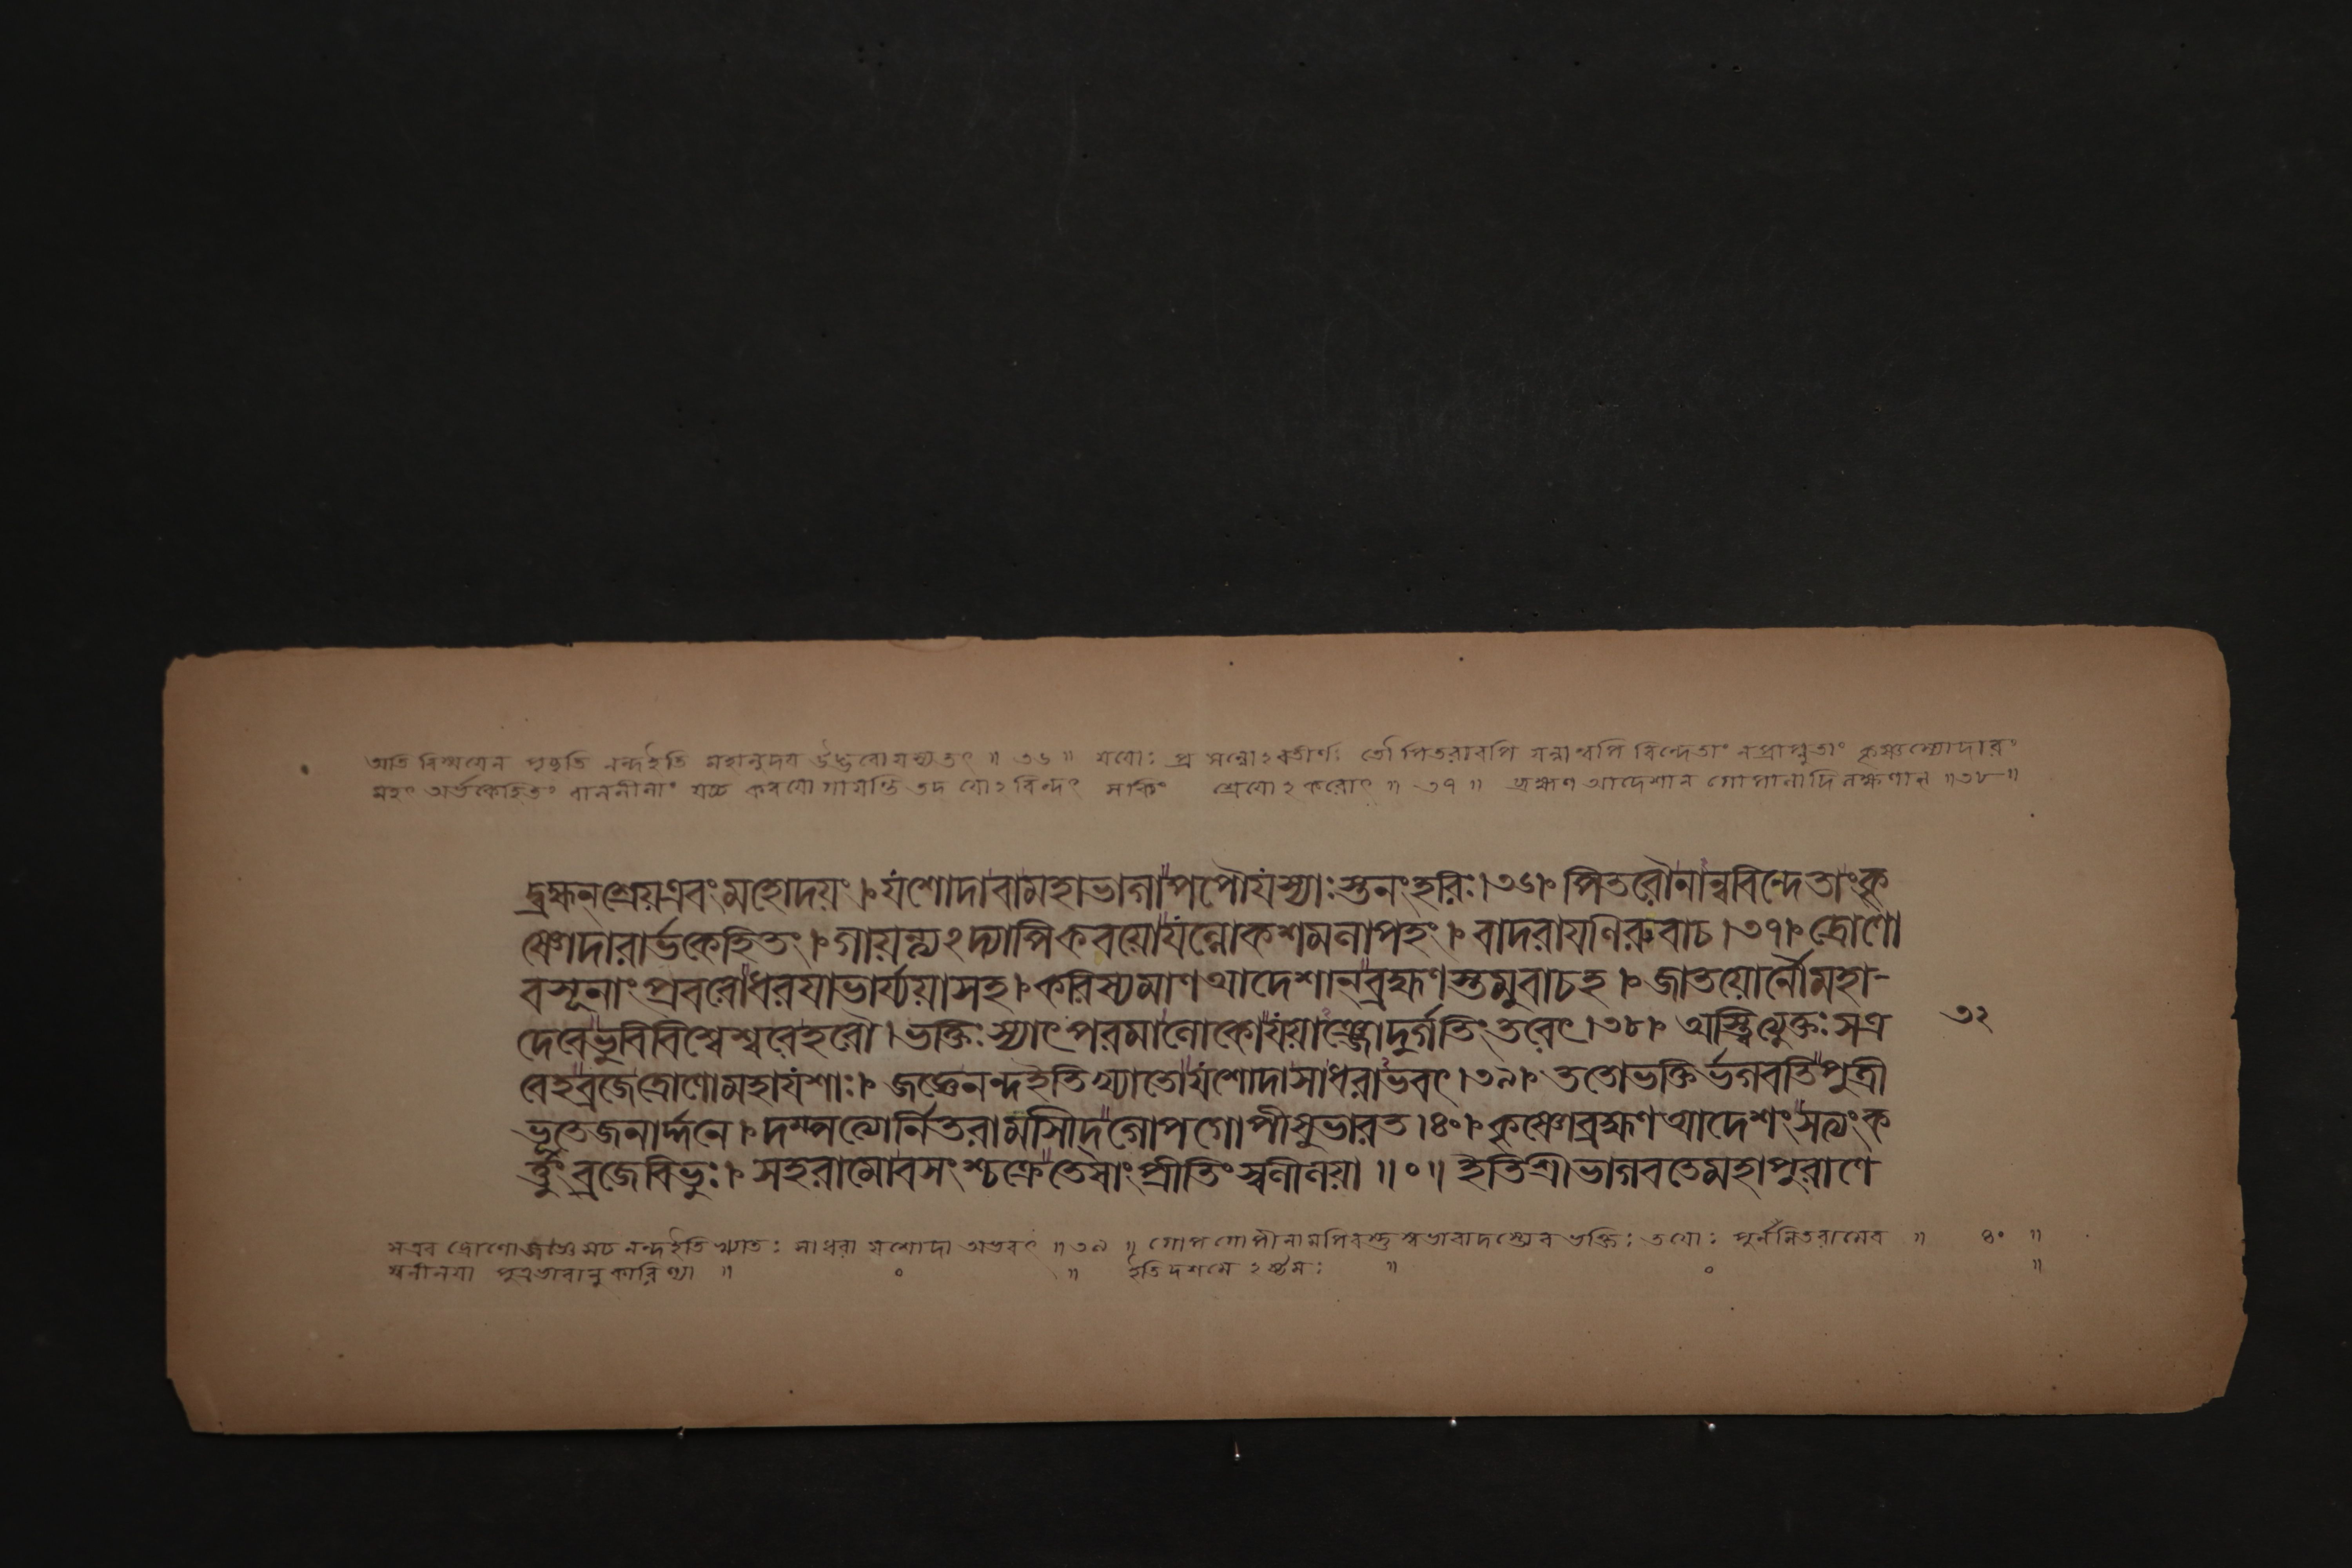 অতি বিস্ময়েন পৃচ্ছতি নন্দইতি মহানুদয় উদ্ভবো যস্যতৎ ॥ ৩৬ ॥ যয়োঃ প্রসন্নোঽবতীর্ণঃ তৌ পিতরাবপি যন্নান্বপি বিন্দেতাং নপ্রাপ্নুতাং কৃষ্ণস্যোদারং
মহৎ অর্ভকেহিতং বাললীলাং যচ্চ কবয়ো গায়ন্তি তদ যোঽবিন্দৎ সকিং শ্রেয়োঽকরোৎ ॥ ৩৭ ॥ ব্রহ্মণ আদেশান গোপালাদি লক্ষণান ॥৩৮॥
দ্ব্রহ্মন্শ্রেয়এবং মহোদয়ং । যশোদাবামহাভাগাপপৌযস্যাঃ স্তনংহরিঃ।৩৬। পিতরৌনান্ববিন্দেতাংকৃ
ষ্ণোদারার্ভকেহিতং । গায়ন্ত্যঽদ্যাপিকবয়োযল্লোকশমলাপহং । বাদরায়ণিরুবাচ ।৩৭। দ্রোণো
বসূনাং প্রবরোধরযাভার্য্যয়াসহ । করিষ্যমাণআদেশান্ব্রহ্মণস্তমুবাচহ । জাতয়োর্নৌমহা-
দেবেভুবিবিশ্বেশ্বরেহরৌ । ভক্তিঃস্যাৎপরমালোকেযয়াঞ্জোদুর্গতিং তরেৎ ।৩৮। অস্ত্বিত্যুক্তঃসএ ৩২
বেহব্রজেদ্রোণোমহাযশাঃ । জজ্ঞেনন্দইতিখ্যাতোযশোদাসাধরাভবৎ ।৩৯। ততোভক্তির্ভগবতিপুত্রী
ভূতেজনার্দ্দনে । দম্পত্যোর্নিতরামাসীদ্গোপগোপীসুভারত ।৪০। কৃষ্ণোব্রহ্মণআদেশংসত্যংক
র্ত্তুংব্রজেবিভুঃ । সহরামোবসংশ্চক্রেতেষাংপ্রীতিংস্বলীলয়া ॥০॥ ইতিশ্রীভাগবতেমহাপুরাণে
সএব দ্রোণোজজ্ঞেসচ নন্দইতি খ্যাতঃ সাধরা যশোদা অভবৎ ॥৩৯॥ গোপ গোপীনামপি ভক্তিঃ তয়োঃ নিতরামেব ॥ ৪০ ॥
স্বলীলয়া পুত্রভাবানুকারিণ্যা ॥ ০ ॥ ইতি দশমে ঽষ্টমঃ ॥ ০ ॥